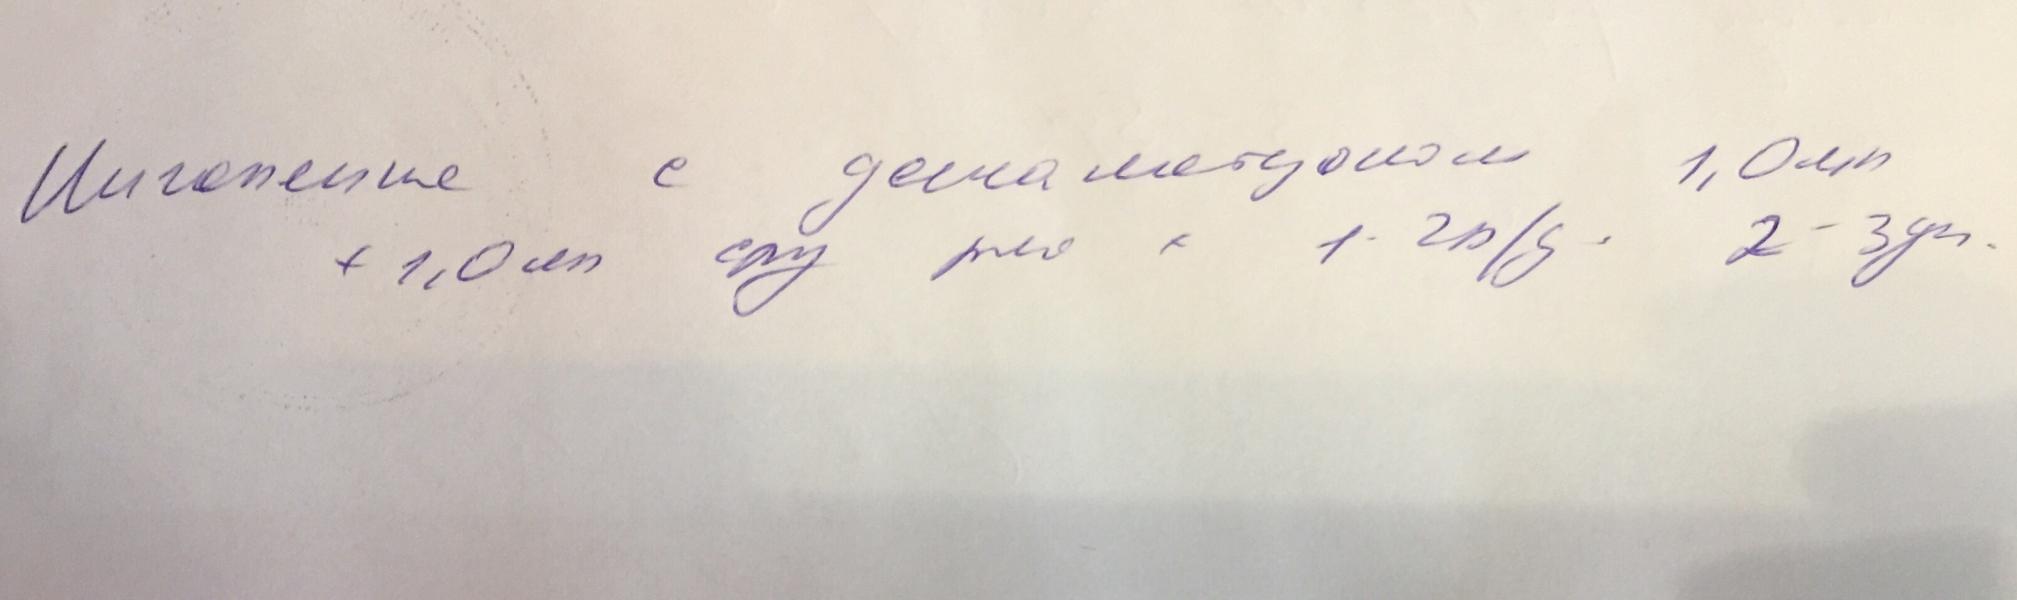 Ингаляции с дексаметазоном 1,0 мл
+ 1,0 мл физ р-ра х 1-2 р/д. 2-3 дн.